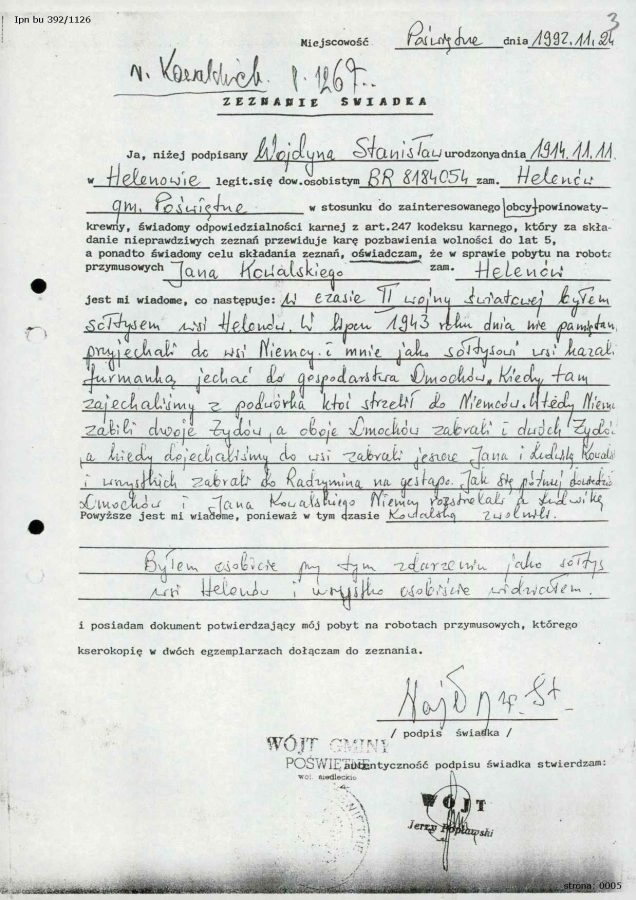 Ipn bu 392/1126
3
Miejscowość Poświętne dnia 1992.11.24
v. Kowalskich p. 1267..
ZEZNANIE ŚWIADKA
Ja, niżej podpisany Wojdyna Stanisław urodzonya dnia 1914.11.11.
w Helenowie legit.się dow.osobistym BR 8184054 zam. Helenów
gm. Poświętne w stosunku do zainteresowanego obcy powinowaty-
krewny, świadomy odpowiedzialności karnej z art.247 kodeksu karnego, który za skła-
danie nieprawdziwych zeznań przewiduje karę pozbawienia wolności do lat 5,
a ponadto świadomy celu składania zeznań, oświadczam, że w sprawie pobytu na robota
przymusowych Jana Kowalskiego zam. Helenów
jest mi wiadome, co następuje: W czasie II wojny światowej byłem
sołtysem wsi Helenów. W lipcu 1943 roku dnia nie pamiętam
przyjechali do wsi Niemcy i mnie jako sołtysowi wsi kazali
furmanką jechać do gospodarstwa Dmochów. Kiedy tam
zajechaliśmy z podwórka ktoś strzelił do Niemców. Wtedy Niemc
zabili dwoje Żydów, a oboje Dmochów zabrali i dwóch Żydów
a kiedy dojechaliśmy do wsi zabrali jeszcze Jana i Ludwikę Kowals
i wszystkich zabrali do Radzymina na gestapo. Jak się później dowiedzia
Dmochów i Jana Kowalskiego Niemcy rozstrzelali a Ludwikę
Powyższe jest mi wiadome, ponieważ w tym czasie Kowalską zwolnili.
Byłem osobiście przy tym zdarzeniu jako sołtys
wsi Helenów i wszystko osobiście widziałem.
i posiadam dokument potwierdzający mój pobyt na robotach przymusowych, którego
kserokopię w dwóch egzemplarzach dołączam do zeznania.
Wojdyn. St.
/ podpis świadka /
WÓJT GMINY
POŚWIĘTNE
woj. siedleckie
autentyczność podpisu świadka stwierdzam:
WÓJT
Jerzy Popławski
strona: 0005